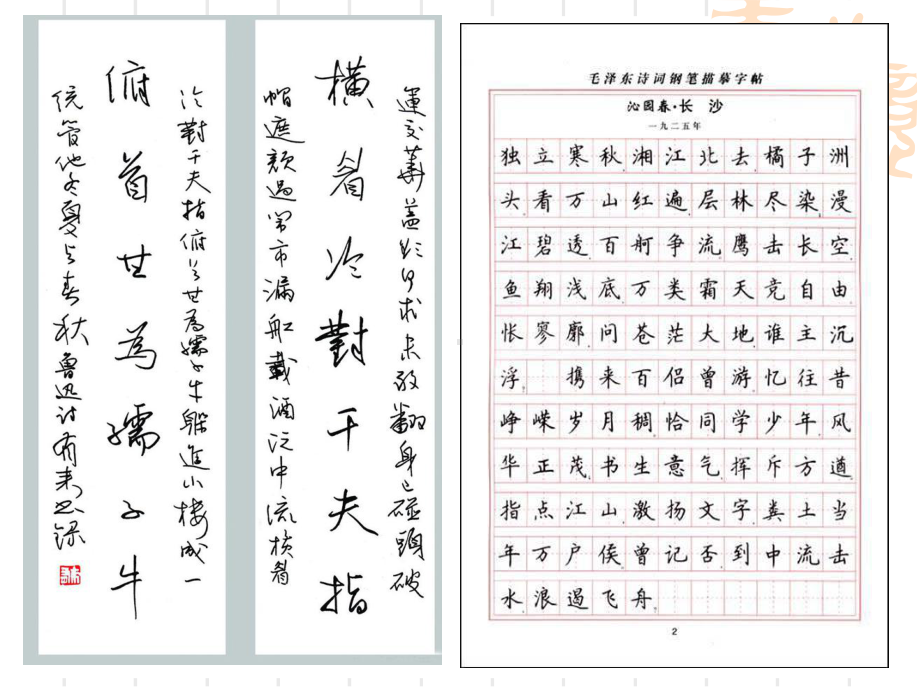 運交華蓋欲何求未敢翻身已碰頭破
橫眉冷對千夫指
帽遮顏過鬧市漏舡載酒泛中流橫眉
冷對千夫指俯首甘為孺子牛躲進小樓成一
俯首甘為孺子牛
统管他冬夏与春秋鲁迅诗
毛泽东诗词钢笔描摹字帖
沁园春·长沙
一九二五年
独立寒秋湘江北去橘子洲
头看万山红遍层林尽染漫
江碧透百舸争流鹰击长空
鱼翔浅底万类霜天竞自由
怅寥廓问苍茫大地谁主沉
浮 携来百侣曾游忆往昔
峥嵘岁月稠恰同学少年风
华正茂书生意气挥斥方遒
指点江山激扬文字粪土当
年万户侯曾记否到中流击
水浪遏飞舟
2